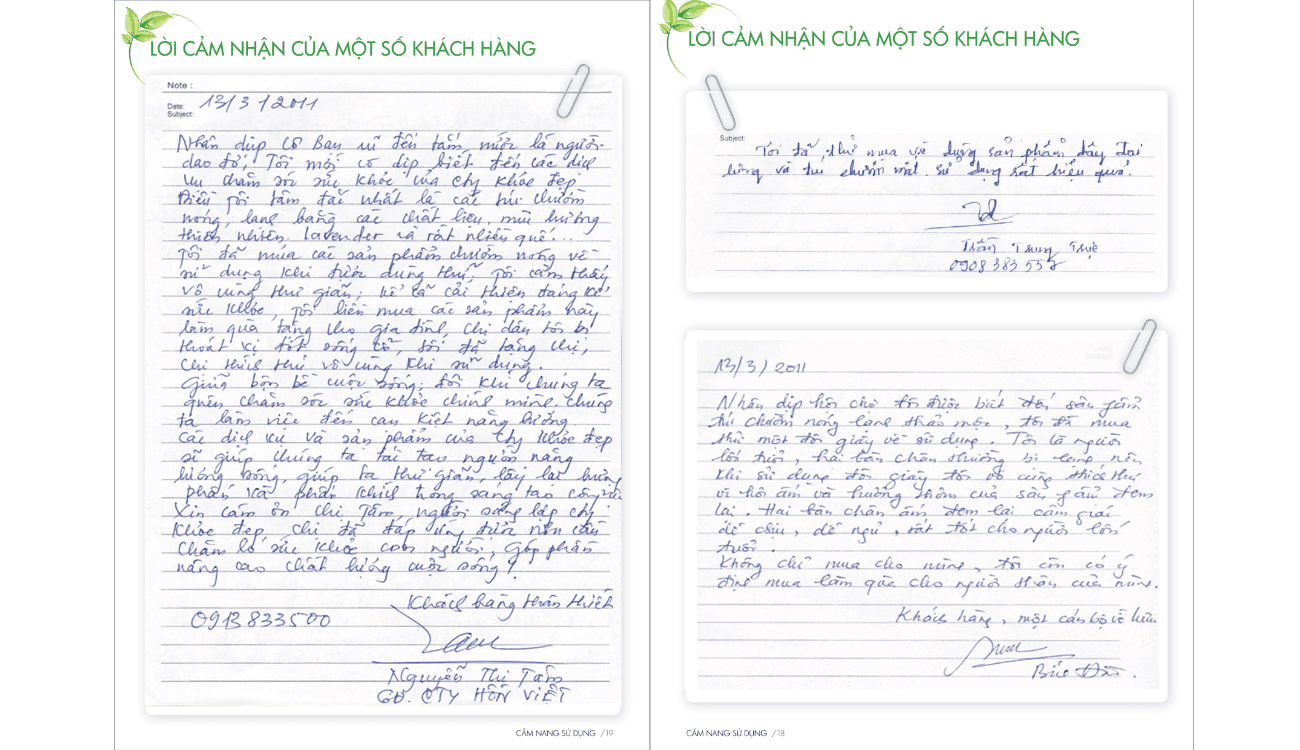 LỜI CẢM NHẬN CỦA MỘT SỐ KHÁCH HÀNG
Note :
Date: 13/3/2011
Subject:
Nhân dịp cô bạn đến tấm, mức là người
dao đỏ, Tôi mới có dịp biết đến các dịch
vụ chăm sóc sức khỏe của Cty Khỏe đẹp
Điều tôi tâm đắc nhất là các túi chườm
nóng, lạnh bằng các chất liệu, mùi hương
thiên nhiên. lavender và rất nhiều quế...
Tôi đã mua các sản phẩm chườm nóng về
sử dụng khi được dùng thử, Tôi cảm thấy
vô cùng thư giãn, kể cả cải thiện đáng kể
sức khỏe, Tôi liền mua các sản phẩm này
làm quà tặng cho gia đình, chị dâu tôi bị
thoát vị đốt sống cổ, tôi đã tặng chị,
chị thích thú vô cùng khi sử dụng.
Giữa bộn bề cuộc sống, đôi khi chúng ta
quên chăm sóc sức khỏe chính mình. chúng
ta làm việc đến cạn kiệt năng lượng.
Các dịch vụ và sản phẩm của Cty Khỏe đẹp
sẽ giúp chúng ta tái tạo nguồn năng
lượng sống, giúp ta thư giãn, lấy lại hưng
phấn và phấn khích trong sáng tạo công việc
Xin cám ơn chị Tâm, người sáng lập cty
Khỏe đẹp, chị đã đáp ứng được nhu cầu
chăm lo sức khỏe con người, góp phần
nâng cao chất lượng cuộc sống!
Khách hàng thân thiết
0913833500
Nguyễn Thị Tám
GĐ. CTY HỒN VIỆT
CẨM NANG SỬ DỤNG /19
LỜI CẢM NHẬN CỦA MỘT SỐ KHÁCH HÀNG
Subject:
Tôi đã thử mua về dụng sản phẩm dây đai
lưng và túi chườm mắt. Sử dụng rất hiệu quả.
Trần Trung Trực
0908 383 557
13/3/2011
Nhân dịp hội chợ tôi được biết đến sản phẩm
túi chườm nóng lạnh thảo mộc, tôi đã mua
thử một đôi giày về sử dụng. Tôi là người
lớn tuổi, hai bàn chân thường bị lạnh nên
khi sử dụng đôi giày tôi vô cùng thích thú
vì hơi ấm và hương thơm của sản phẩm đem
lại. Hai bàn chân ấm đem lại cảm giác
dễ chịu, dễ ngủ, rất tốt cho người lớn
tuổi.
Không chỉ mua cho mình, tôi còn có ý
định mua làm quà cho người thân của mình.
Khách hàng, một cán bộ về hưu
CẨM NANG SỬ DỤNG /18